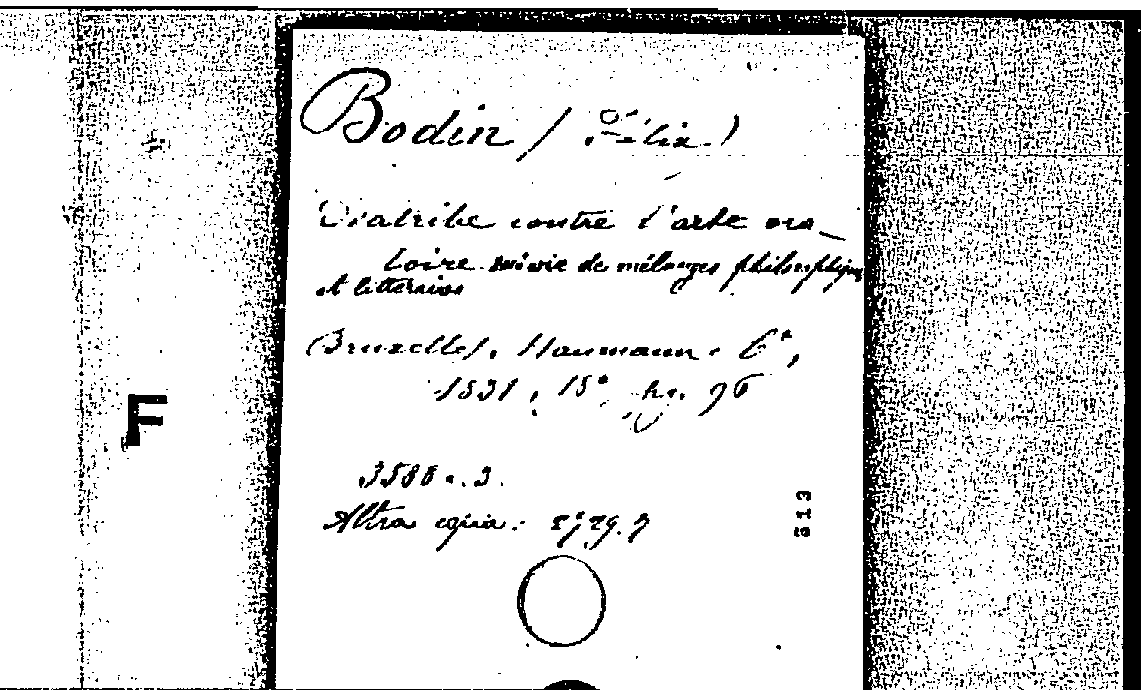 Bodin (Félix)
Diatribe contre l'arte ora_
toire suivie de mélanges philosophiques
et littéraires
Bruxelles, Haumann e C°,
1831, 18°, pg. 96
3588.2.
Altra copia: 2729.7
F
513